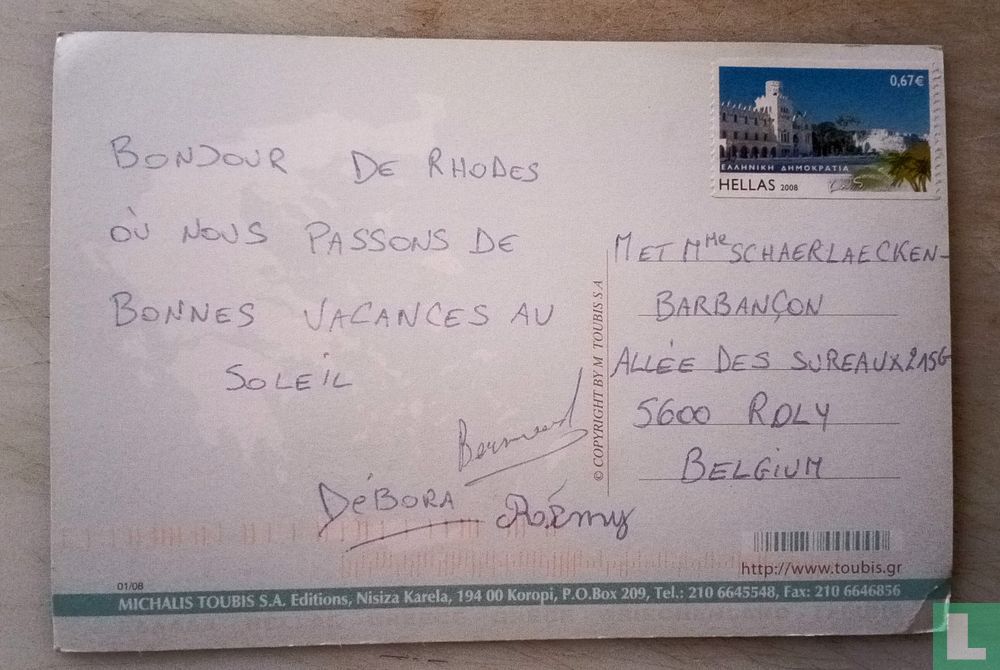 BONJOUR DE RHODES
OÙ NOUS PASSONS DE
BONNES VACANCES AU
SOLEIL
Bernard
DéBORA Rémy
0,67€
ΕΛΛΗΝΙΚΗ ΔΗΜΟΚΡΑΤΙΑ
HELLAS 2008
M ET MMe SCHAERLAECKEN-
BARBANÇON
ALLÉE DES SUREAUX 215G
5600 ROLY
BELGIUM
© COPYRIGHT BY M TOUBIS S A
http://www.toubis.gr
01/08
MICHALIS TOUBIS S.A. Editions, Nisiza Karela, 194 00 Koropi, P.O.Box 209, Tel.: 210 6645548, Fax: 210 6646856
L